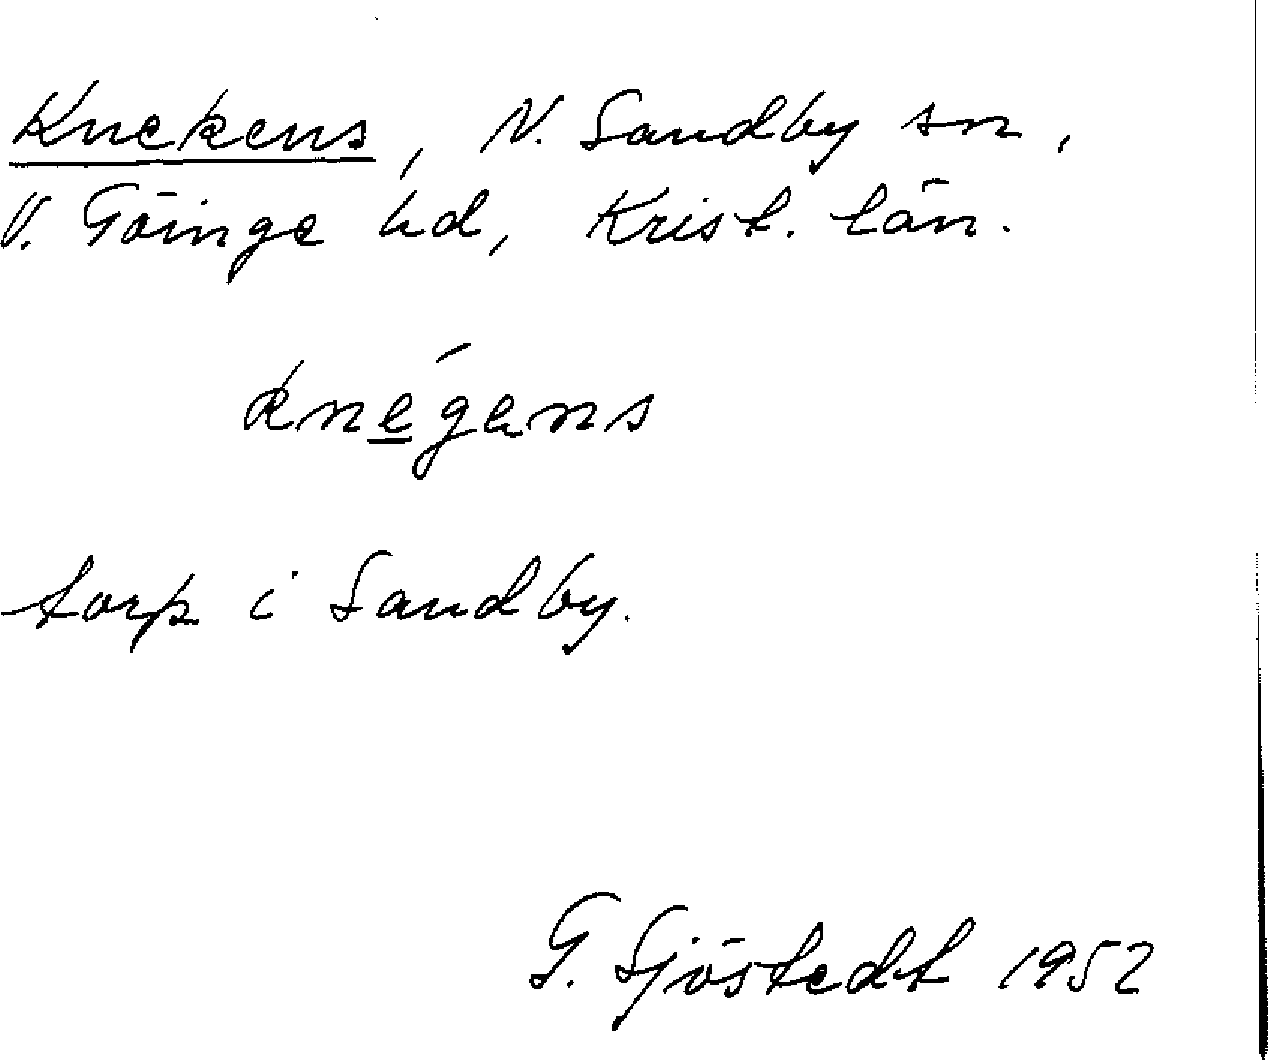 Knekens, N. Sandby sn,
V. Göinge hd, Krist. län.
kne̲´gens
torp i Sandby.
G. Sjöstedt 1952